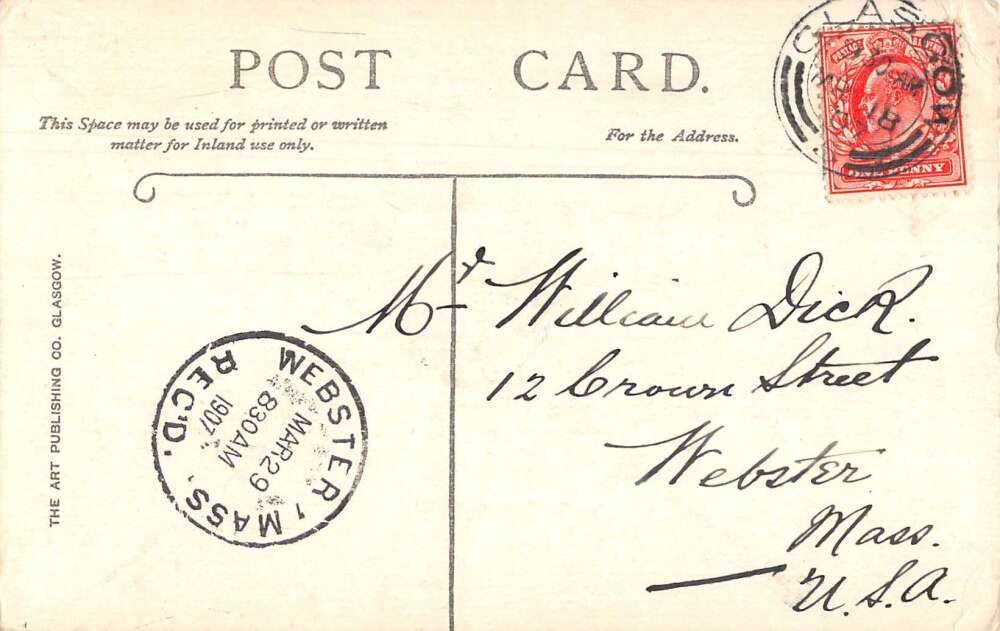 POST CARD.
This Space may be used for printed or written
matter for Inland use only.
For the Address.
THE ART PUBLISHING CO. GLASGOW.
GLASGOW
30 AM
MR 18
ONE PENNY
WEBSTER, MASS.
MAR 29
830AM
1907
REC'D.
Mr William Dick.
12 Crown Street
Webster
Mass.
U.S.A.